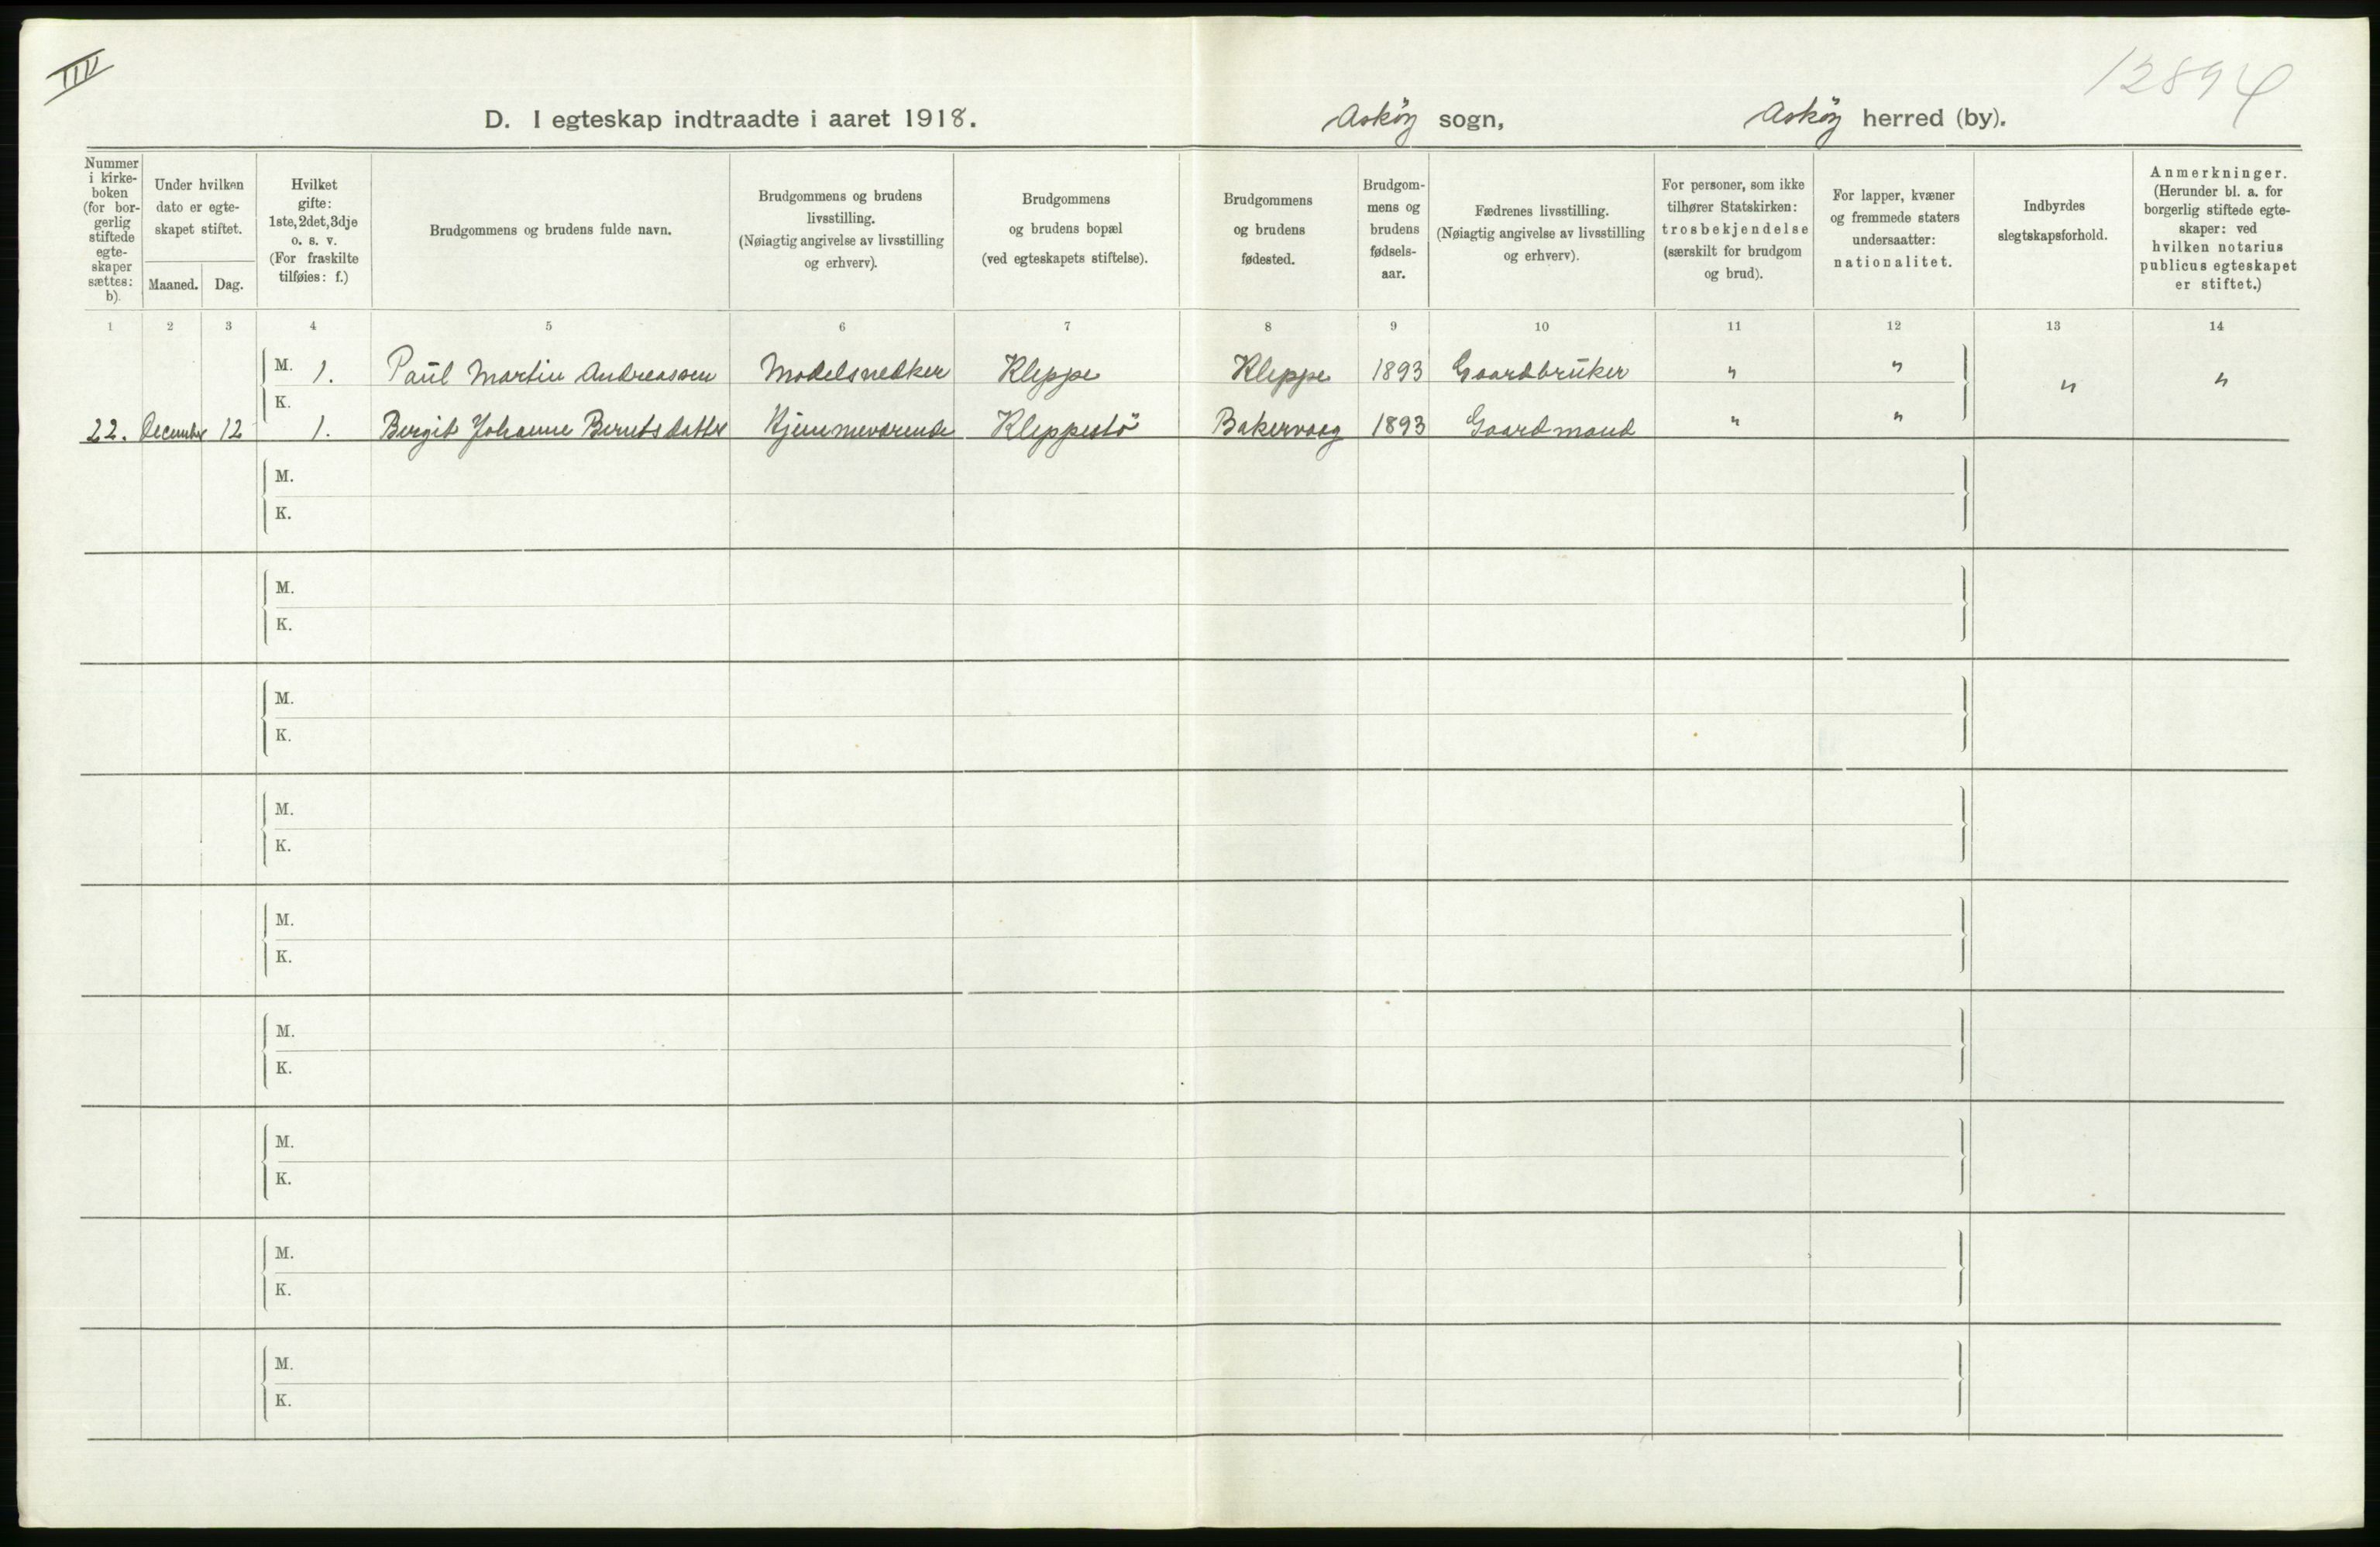 III
12894
D. I egteskap indtraadte i aaret 1918.
Askøy sogn,
Askøy herred (by).
Nummer i kirke-boken (for bor-gerlig stiftede egte-skaper sættes: b).
Under hvilken dato er egte-skapet stiftet.
Maaned.
Dag.
Hvilket gifte: 1ste, 2det, 3dje o. s. v. (For fraskilte tilføies: f.)
Brudgommens og brudens fulde navn.
Brudgommens og brudens livsstilling. (Nøiagtig angivelse av livsstilling og erhverv).
Brudgommens og brudens bopæl (ved egteskapets stiftelse).
Brudgommens og brudens fødested.
Brudgom-mens og brudens fødsels-aar.
Fædrenes livsstilling. (Nøiagtig angivelse av livsstilling og erhverv).
For personer, som ikke tilhører Statskirken: trosbekjendelse (særskilt for brudgom og brud).
For lapper, kvæner og fremmede staters undersaatter: nationalitet.
Indbyrdes slegtskapsforhold.
Anmerkninger. (Herunder bl. a. for borgerlig stiftede egte-skaper: ved hvilken notarius publicus egteskapet er stiftet.)
1 2 3 4 5 6 7 8 9 10 11 12 13 14
M. 1. Paul Martin Andreassen Modelsnedker Kleppe Kleppe 1893 Gaardbruker " " " "
K.
22. December 12 1. Bergit Johanne Berntsdatter Hjemmeværende Kleppestö Bakervaag 1893 Gaardmand " "
M.
K.
M.
K.
M.
K.
M.
K.
M.
K.
M.
K.
M.
K.
M.
K.
M.
K.